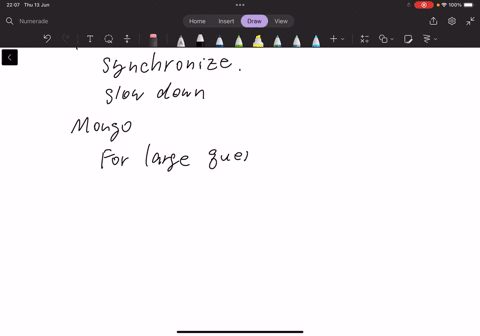 22:07 Thu 13 Jun
100%
Numerade
Home Insert Draw View
synchronize.
slow down
Mongo
For large ques